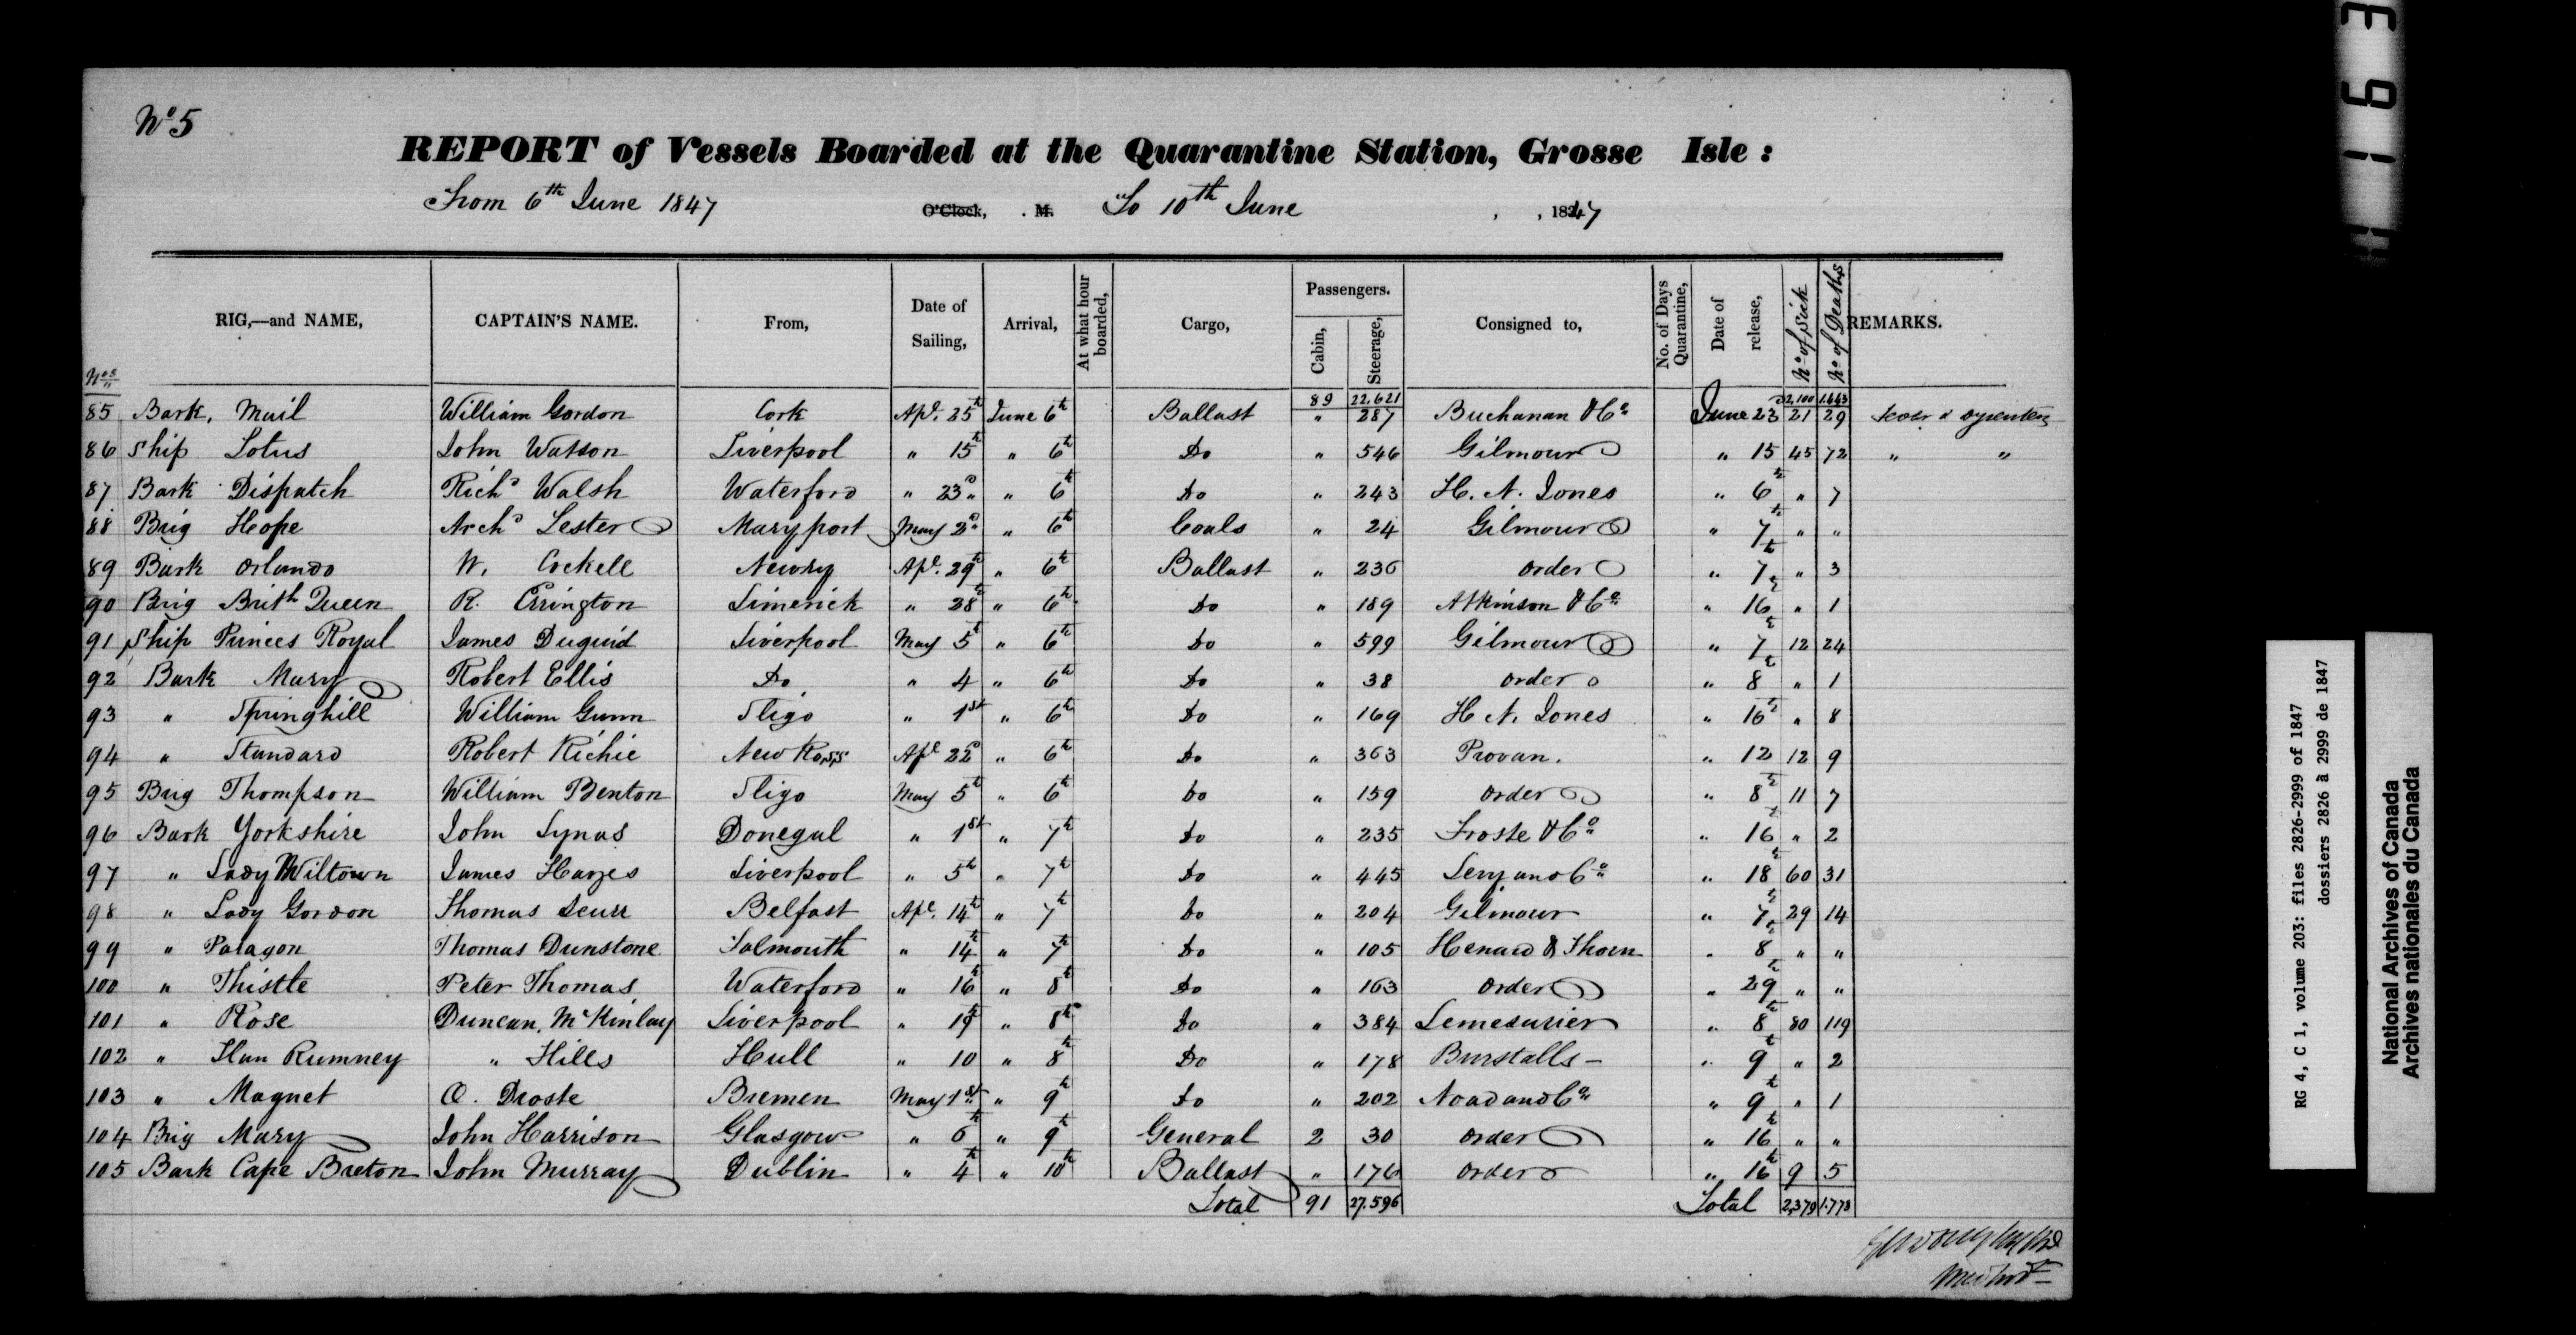 No 5
REPORT of Vessels Boarded at the Quarantine Station, Grosse Isle :
From 6th June 1847 O'Clock, . M. To 10th June , , 1847
RIG,—and NAME, CAPTAIN'S NAME. From, Date of Sailing, Arrival, At what hour boarded, Cargo, Passengers. Cabin, Steerage, Consigned to, No. of Days Quarantine, Date of release, No of Sick No of Deaths REMARKS.
Nos
89 22,621 2,100 1.443
85 Bark, Mail William Gordon Cork Apl. 25th June 6th Ballast " 287 Buchanan & Co June 23 21 29 fever & dysentery
86 Ship Lotus John Watson Liverpool " 15th " 6th Do " 546 Gilmour " 15 45 72 " "
87 Bark Dispatch Richd Walsh Waterford " 23d " 6th Do " 243 H. N. Jones " 6th " 7
88 Brig Hope Archd Lester Maryport May 2d " 6th Coals " 24 Gilmour " 7th " "
89 Bark Orlando W. Cockell Newry Apl. 29th " 6th Ballast " 236 order " 7th " 3
90 Brig Brith Queen R. Errington Limerick " 28th " 6th Do " 189 Atkinson & Co " 16 " 1
91 Ship Princes Royal James Duguid Liverpool May 5th " 6th Do " 599 Gilmour " 7th 12 24
92 Bark Mary Robert Ellis Do " 4 " 6th Do " 38 order " 8th " 1
93 " Springhill William Gunn Sligo " 1st " 6th Do " 169 H N. Jones " 16th " 8
94 " Standard Robert Richie New Ross Apl 22d " 6th Do " 363 Provan. " 12 12 9
95 Brig Thompson William Benton Sligo May 5th " 6th Do " 159 order " 8th 11 7
96 Bark Yorkshire John Synas Donegal " 1st " 7th Do " 235 Froste & Co " 16th " 2
97 " Lady Miltown James Liverpool " 5th " 7th Do " 445 and Co " 18th 60 31
98 " Lady Gordon Thomas Scurr Belfast Apl. 14th " 7th Do " 204 Gilmour " 7th 29 14
99 " Paragon Thomas Dunstone Falmouth " 14th " 7th Do " 105 & " 8th " "
100 " Thistle Peter Thomas Waterford " 16th " 8th Do " 163 order " 29th " "
101 " Rose Duncan, McKinlay Liverpool " 19th " 8th Do " 384 Lemesurier " 8th 80 119
102 " Rumney " Hills Hull " 10 " 8th Do " 178 Burstalls – " 9th " 2
103 " Magnet O. Droste Bremen May 1st " 9th Do " 202 Noad and Co " 9th " 1
104 Brig Mary John Harrison Glasgow " 6th " 9th General 2 30 order " 16th " "
105 Bark Cape Breton John Murray Dublin " 4th " 10th Ballast " 176 order " 16th 9 5
Total 91 27.596 Total 2,379 1.778
1163
RG 4, C 1, volume 203: files 2826-2999 of 1847
dossiers 2826 à 2999 de 1847
National Archives of Canada
Archives nationales du Canada